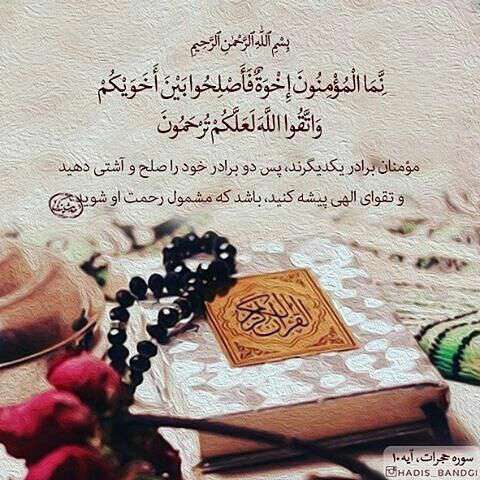 بِسْمِ اللَّهِ الرَّحْمَٰنِ الرَّحِيمِ
نَّمَا الْمُؤْمِنُونَ إِخْوَةٌ فَأَصْلِحُوا بَيْنَ أَخَوَيْكُمْ
وَاتَّقُوا اللَّهَ لَعَلَّكُمْ تُرْحَمُونَ
مؤمنان برادر یکدیگرند، پس دو برادر خود را صلح و آشتی دهید
و تقوای الهی پیشه کنید، باشد که مشمول رحمت او شوید.
القرآن الکریم
سوره حجرات، آیه ۱۰
HADIS_BANDGI